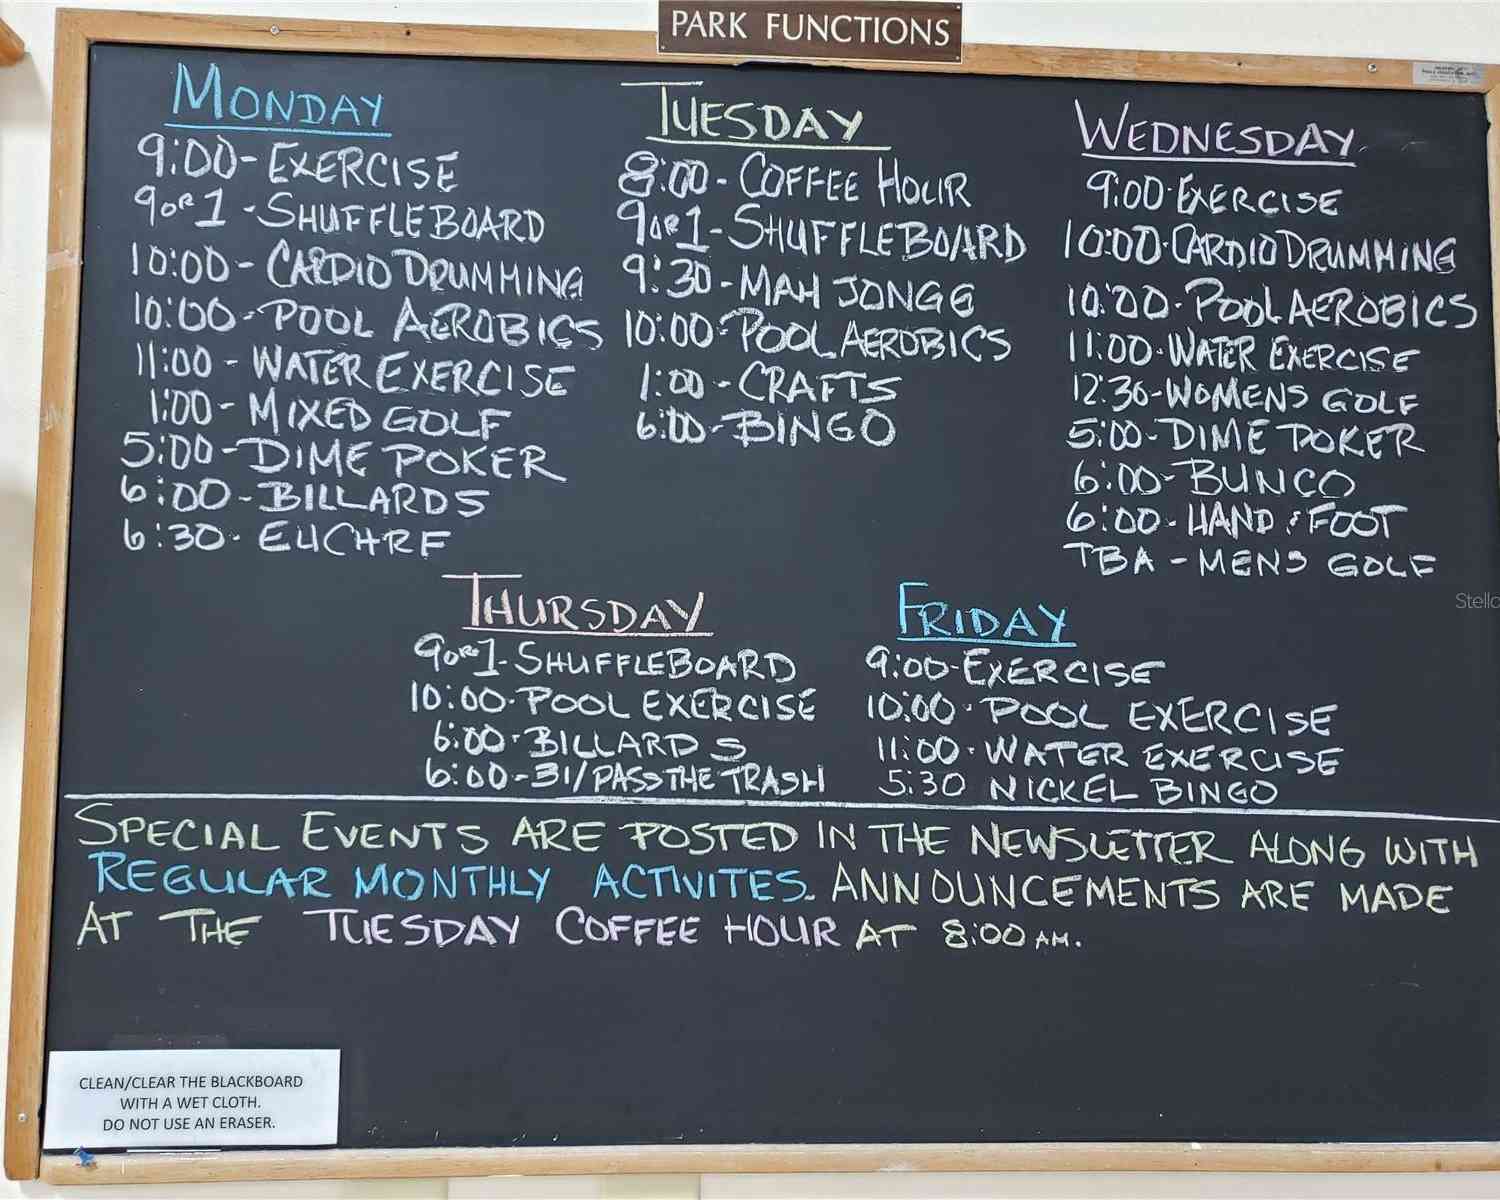 PARK FUNCTIONS
MONDAY
9:00 - EXERCISE
9 OR 1 - SHUFFLEBOARD
10:00 - CARDIO DRUMMING
10:00 - POOL AEROBICS
11:00 - WATER EXERCISE
1:00 - MIXED GOLF
5:00 - DIME POKER
6:00 - BILLARDS
6:30 - EUCHRE
TUESDAY
8:00 - COFFEE HOUR
9 OR 1 - SHUFFLEBOARD
9:30 - MAH JONGG
10:00 - POOL AEROBICS
1:00 - CRAFTS
6:00 - BINGO
WEDNESDAY
9:00 - EXERCISE
10:00 - CARDIO DRUMMING
10:00 - POOL AEROBICS
11:00 - WATER EXERCISE
12:30 - WOMENS GOLF
5:00 - DIME POKER
6:00 - BUNCO
6:00 - HAND & FOOT
TBA - MENS GOLF
THURSDAY
9 OR 1 - SHUFFLEBOARD
10:00 - POOL EXERCISE
6:00 - BILLARDS
6:00 - 31/PASS THE TRASH
FRIDAY
9:00 - EXERCISE
10:00 - POOL EXERCISE
11:00 - WATER EXERCISE
5:30 NICKEL BINGO
SPECIAL EVENTS ARE POSTED IN THE NEWSLETTER ALONG WITH
REGULAR MONTHLY ACTIVITES. ANNOUNCEMENTS ARE MADE
AT THE TUESDAY COFFEE HOUR AT 8:00 AM.
CLEAN/CLEAR THE BLACKBOARD
WITH A WET CLOTH.
DO NOT USE AN ERASER.